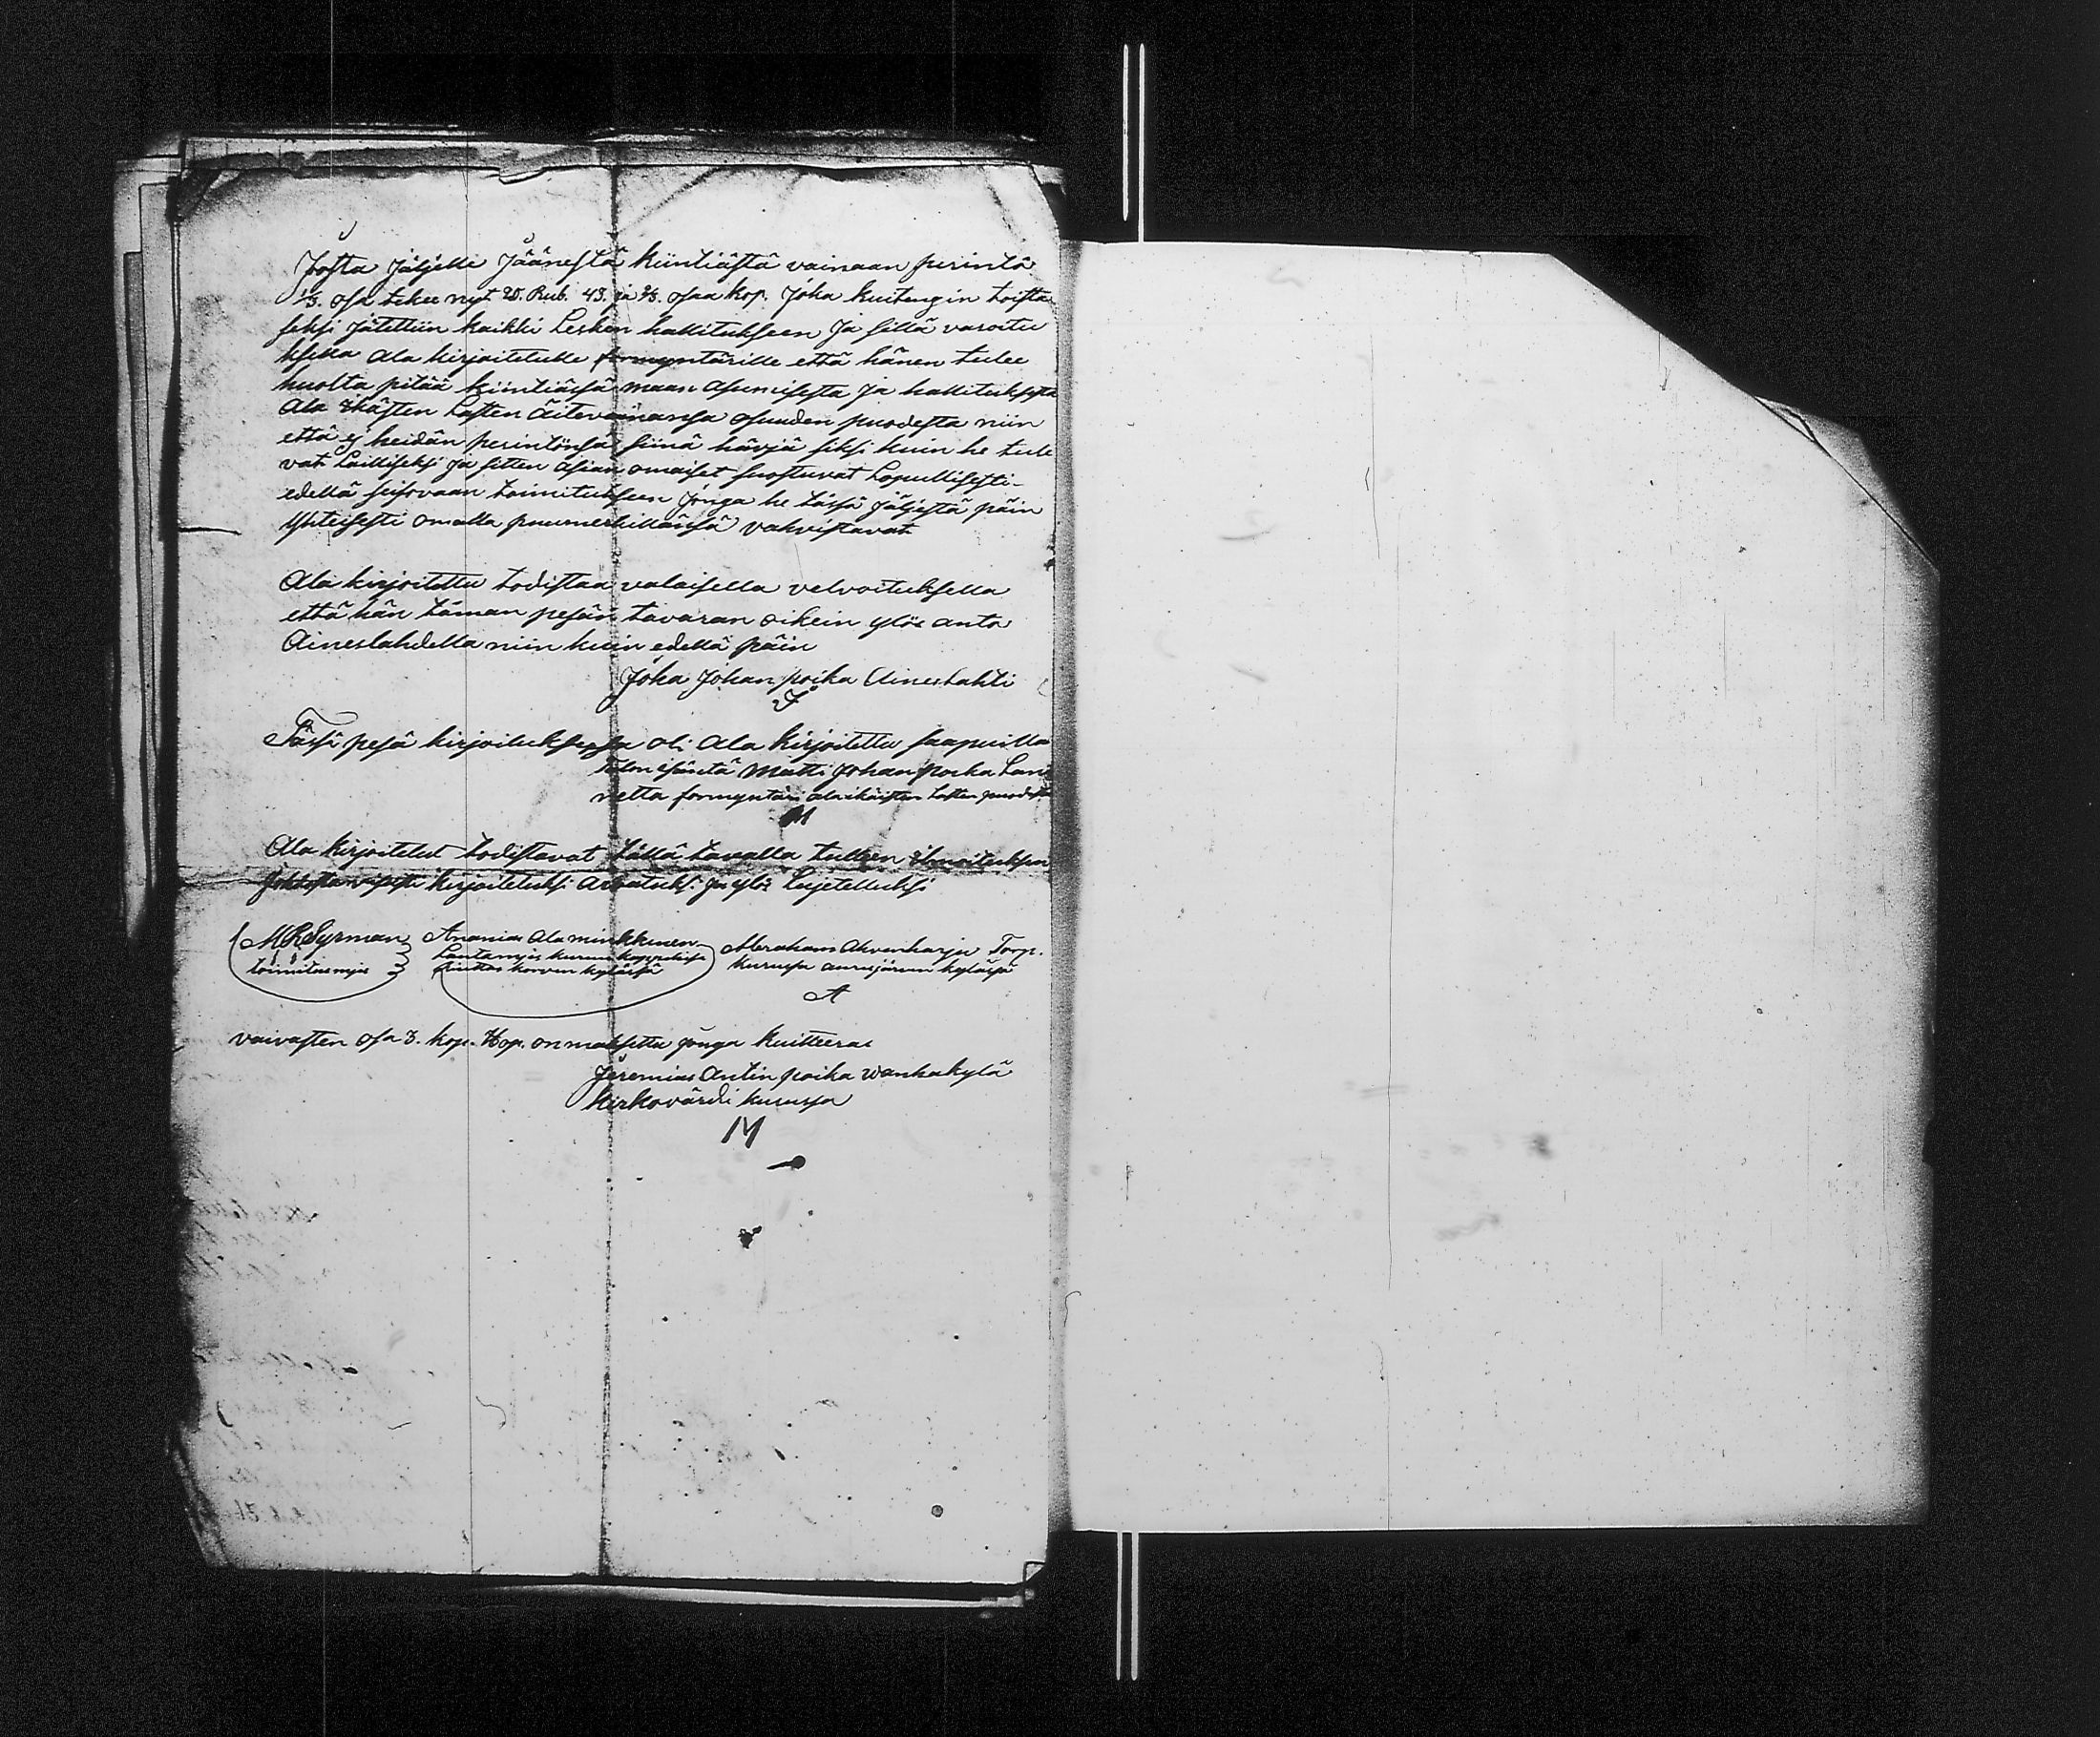 Josta jäljelle jäänestä kiintiästä vainaan perintö
1/3. osa tekee nyt 20. Rub. 43. ja 2/3. osaa kop. joka kuitengin toista
seksi jätettiin kaikki Lesken hallitukseen ja sillä varoitu
ksella ala kirjoitetulle formyntärille että hänen tulee
huolta pitää kiintiässä maan asumisesta ja hallituksesta
ala ikästen Lasten äitevainansa osuuden puodesta niin
että ej heidän perintönsä siinä häviä siksi kuin he tule
vat Lailliseksi ja sitten asian omaiset suostuvat Lopullisesti
edellä seisovaan toimitukseen jonga he tässä jäljestä päin
yhteisesti omalla puumerkillänsä vahvistavat
Ala kirjoitettu todistaa valaisella velvoituksella
että hän täman pesän tavaran oikein ylös anto
Aineslahdella niin kuin edellä päin
Joha Johan poika Aineslahti
J
Tässä pesä kirjoituksessa oli ala kirjoitettu saapuilla
Talon isäntä Matti Johan poika Lan
netta formyntäri alaikäisten Lasten puodesta
M
Ala kirjoitetut todistavat tällä tavalla tulleen ilmoituksen
kirjoitetuksi arvatuksi ja ylös Lujetelluksi
M R Syrman Ananias Ala minkkinen Abraham Ahvenharju Torp.
toimitusmies Lautamjes kurun kappelissa Kurussa aurejärven kylässä
korven kylässä
A
vaivasten osa 3. kop. Hop. on maksettu jonga kuitteeraa
Jeremias Antin poika Wanhakylä
kirkovärdi kurussa
M